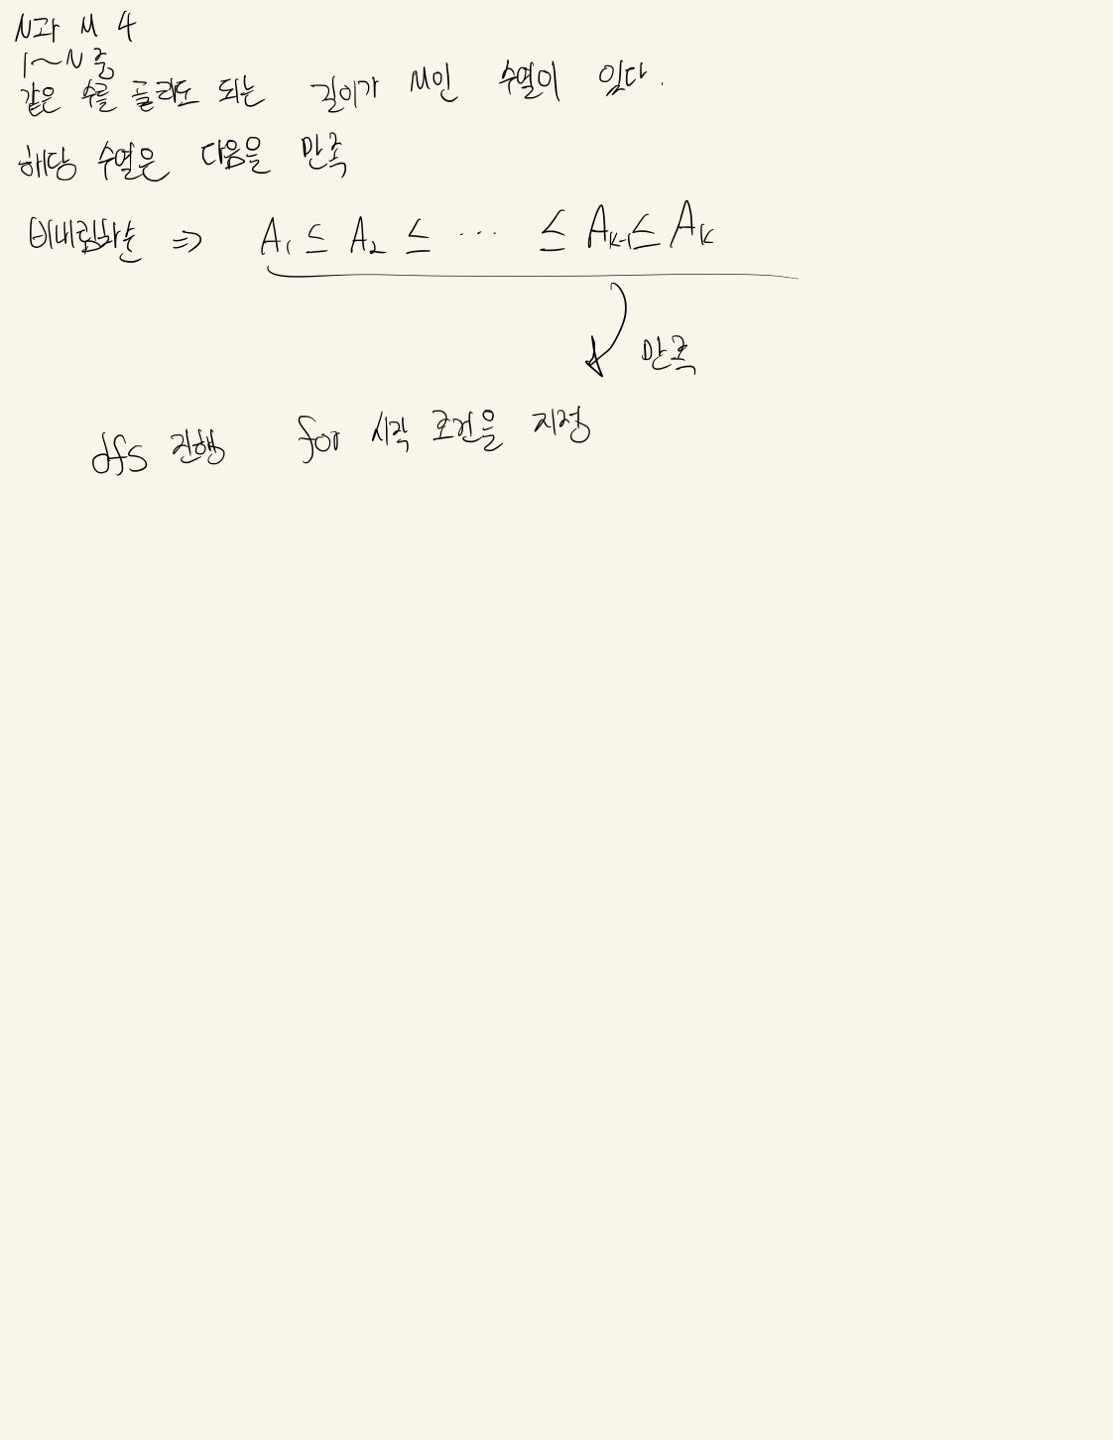 N과 M 4
1~N 중
같은 수를 골라도 되는 길이가 M인 수열이 있다.
해당 수열은 다음을 만족
비내림차순 ⇒ A₁ ≤ A₂ ≤ ... ≤ Aₖ₋₁ ≤ Aₖ
만족
dfs 진행 for 시작 조건을 지정